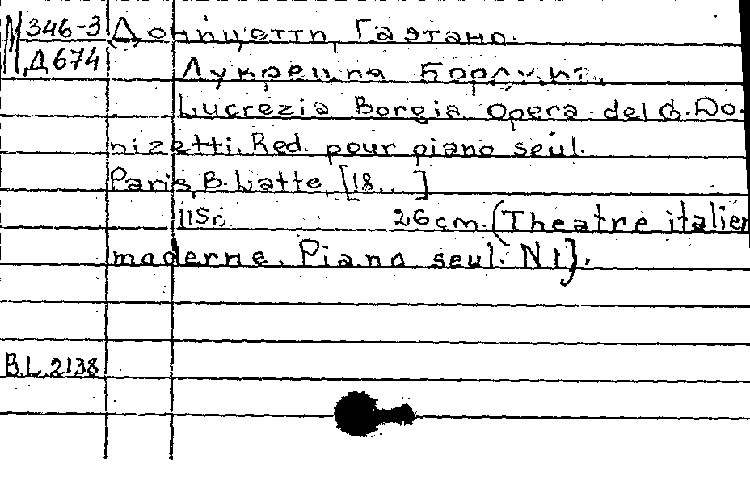 М 346-3 Доницетти, Гаэтано.
Д 674
Лукреция Борджиа.
Lucrezia Borgia. Opera del G. Do-
nizetti. Red. pour piano seul.
Paris, B. Latte, [18...]
115 с. 26 cm. (Theatre italien
moderne. Piano seul. N 1).
B.L. 2138